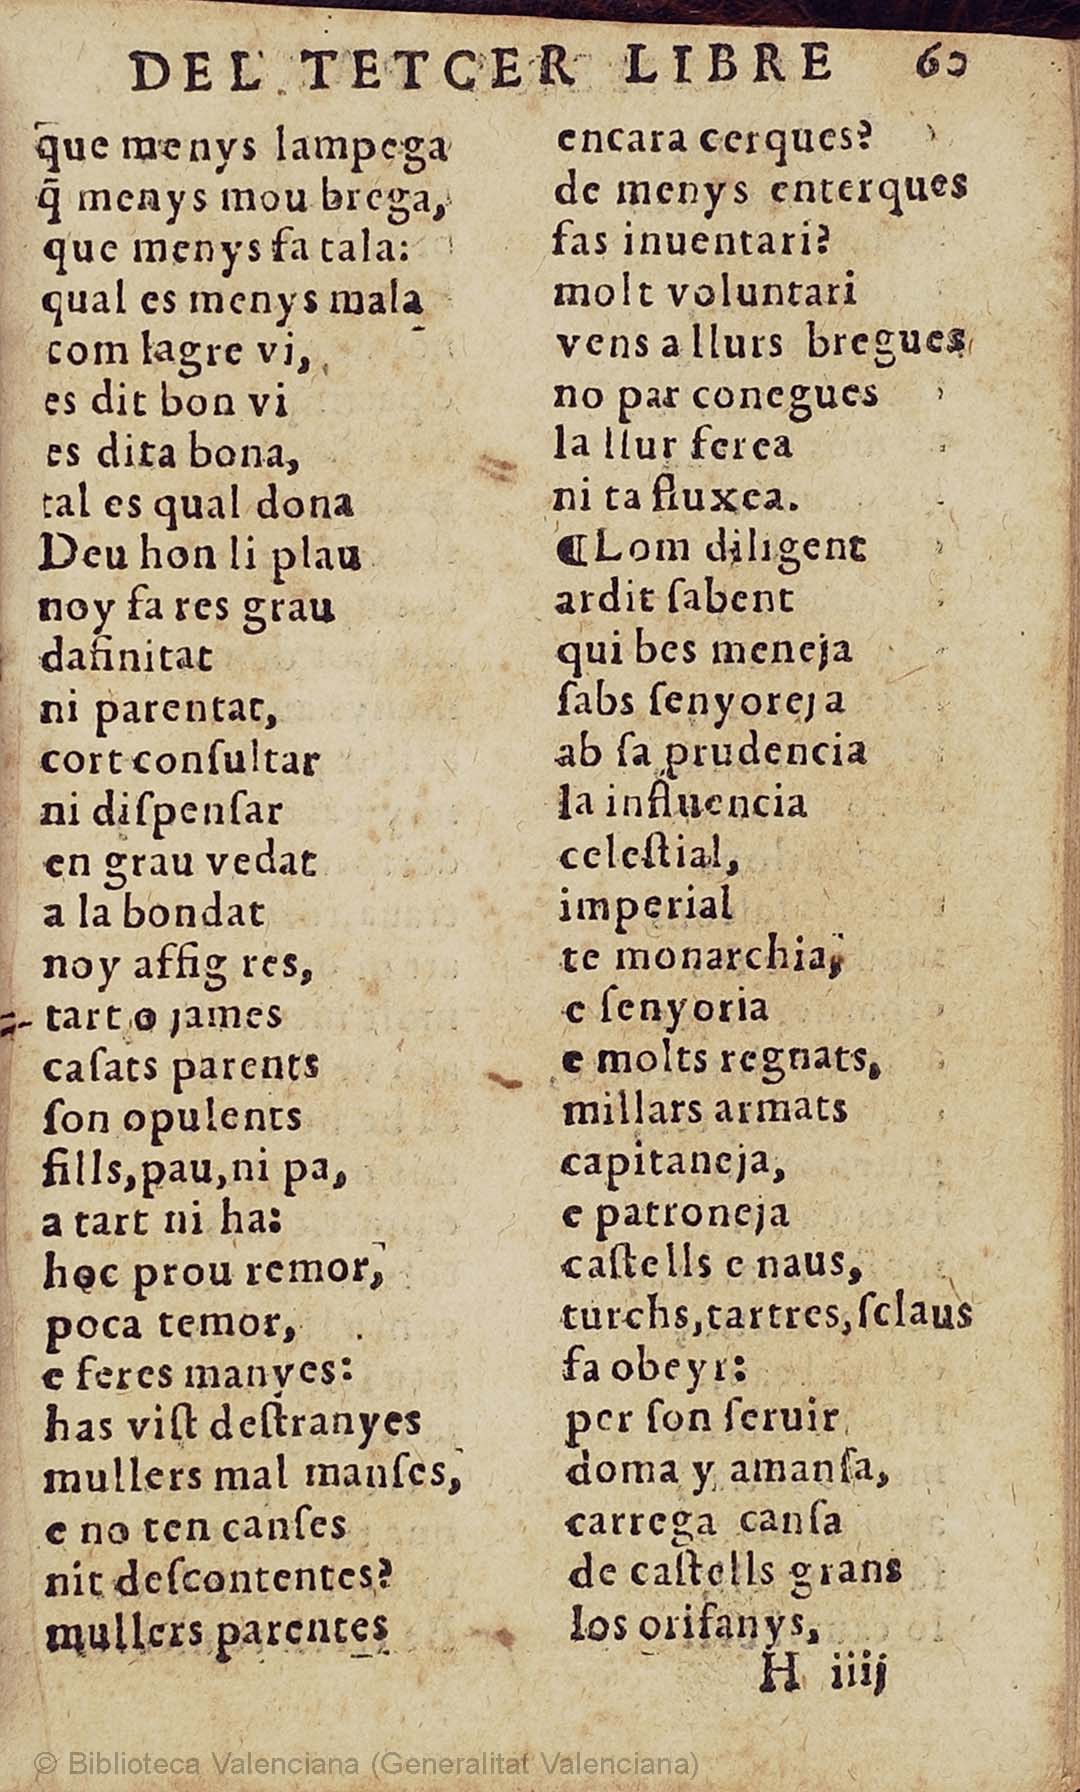 DEL TETCER LIBRE 60
que menys lampega
q̃ menys mou brega,
que menys fa tala:
qual es menys mala
com lagre vi,
es dit bon vi
es dita bona,
tal es qual dona
Deu hon li plau
noy fa res grau
dafinitat
ni parentat,
cort conſultar
ni diſpenſar
en grau vedat
a la bondat
noy affig res,
tart o james
caſats parents
ſon opulents
fills, pau, ni pa,
a tart ni ha:
hoc prou remor,
poca temor,
e feres manyes:
has viſt deſtranyes
mullers mal manſes,
e no ten canſes
nit deſcontentes?
mullers parentes
encara cerques?
de menys enterques
fas inuentari?
molt voluntari
vens a llurs bregues
no par conegues
la llur ferea
ni ta fluxea.
¶Lom diligent
ardit ſabent
qui bes meneja
ſabs ſenyoreja
ab ſa prudencia
la influencia
celeſtial,
imperial
te monarchia,
e ſenyoria
e molts regnats,
millars armats
capitaneja,
e patroneja
caſtells e naus,
turchs, tartres, ſclaus
fa obeyr:
per ſon ſeruir
doma y amanſa,
carrega canſa
de caſtells grans
los orifanys,
H iiij
© Biblioteca Valenciana (Generalitat Valenciana)